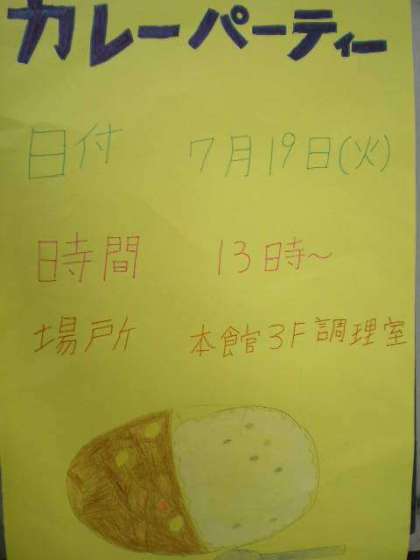 カレーパーティー
日付 7月19日(火)
時間 13時~
場所 本館3F調理室